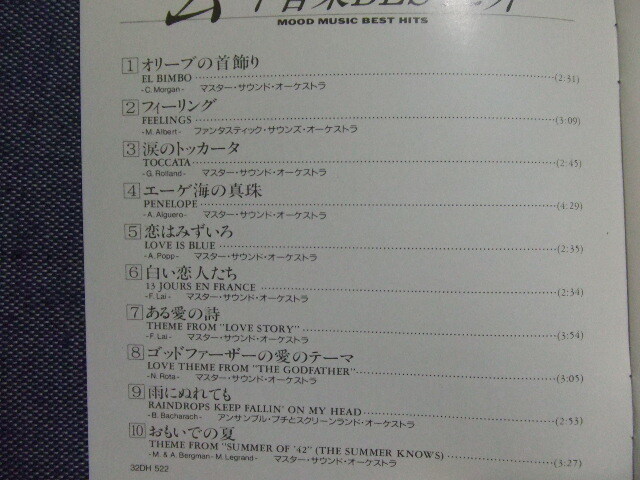 MOOD MUSIC BEST HITS
1 オリーブの首飾り
EL BIMBO (2:31)
-C. Morgan- マスター・サウンド・オーケストラ
2 フィーリング
FEELINGS (3:09)
-M. Albert- ファンタスティック・サウンズ・オーケストラ
3 涙のトッカータ
TOCCATA (2:45)
-G. Rolland- マスター・サウンド・オーケストラ
4 エーゲ海の真珠
PENELOPE (4:29)
-A. Alguero- マスター・サウンド・オーケストラ
5 恋はみずいろ
LOVE IS BLUE (2:35)
-A. Popp- マスター・サウンド・オーケストラ
6 白い恋人たち
13 JOURS EN FRANCE (2:34)
-F. Lai- マスター・サウンド・オーケストラ
7 ある愛の詩
THEME FROM "LOVE STORY" (3:54)
-F. Lai- マスター・サウンド・オーケストラ
8 ゴッドファーザーの愛のテーマ
LOVE THEME FROM "THE GODFATHER" (3:05)
-N. Rota- マスター・サウンド・オーケストラ
9 雨にぬれても
RAINDROPS KEEP FALLIN' ON MY HEAD (2:53)
-B. Bacharach- アンサンブル・プチとスクリーンランド・オーケストラ
10 おもいでの夏
THEME FROM "SUMMER OF '42" (THE SUMMER KNOWS) (3:27)
-M. & A. Bergman- M. Legrand- マスター・サウンド・オーケストラ
32DH 522